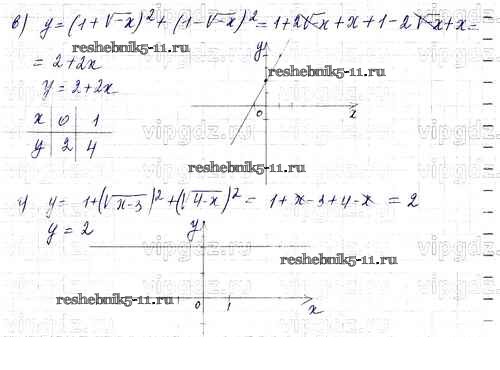 в) y = (1+√-x)² + (1-√-x)² = 1+2√-x + x + 1 - 2√-x + x =
reshebnik5-11.ru
= 2+2x
y = 2+2x
y
x 0 1
y 2 4
0 x
vipgdz.ru
reshebnik5-11.ru
г) y = 1+(√x-3)² + (√4-x)² = 1+x-3+4-x = 2
y = 2
y
reshebnik5-11.ru
reshebnik5-11.ru
0 1 x
vipgdz.ru